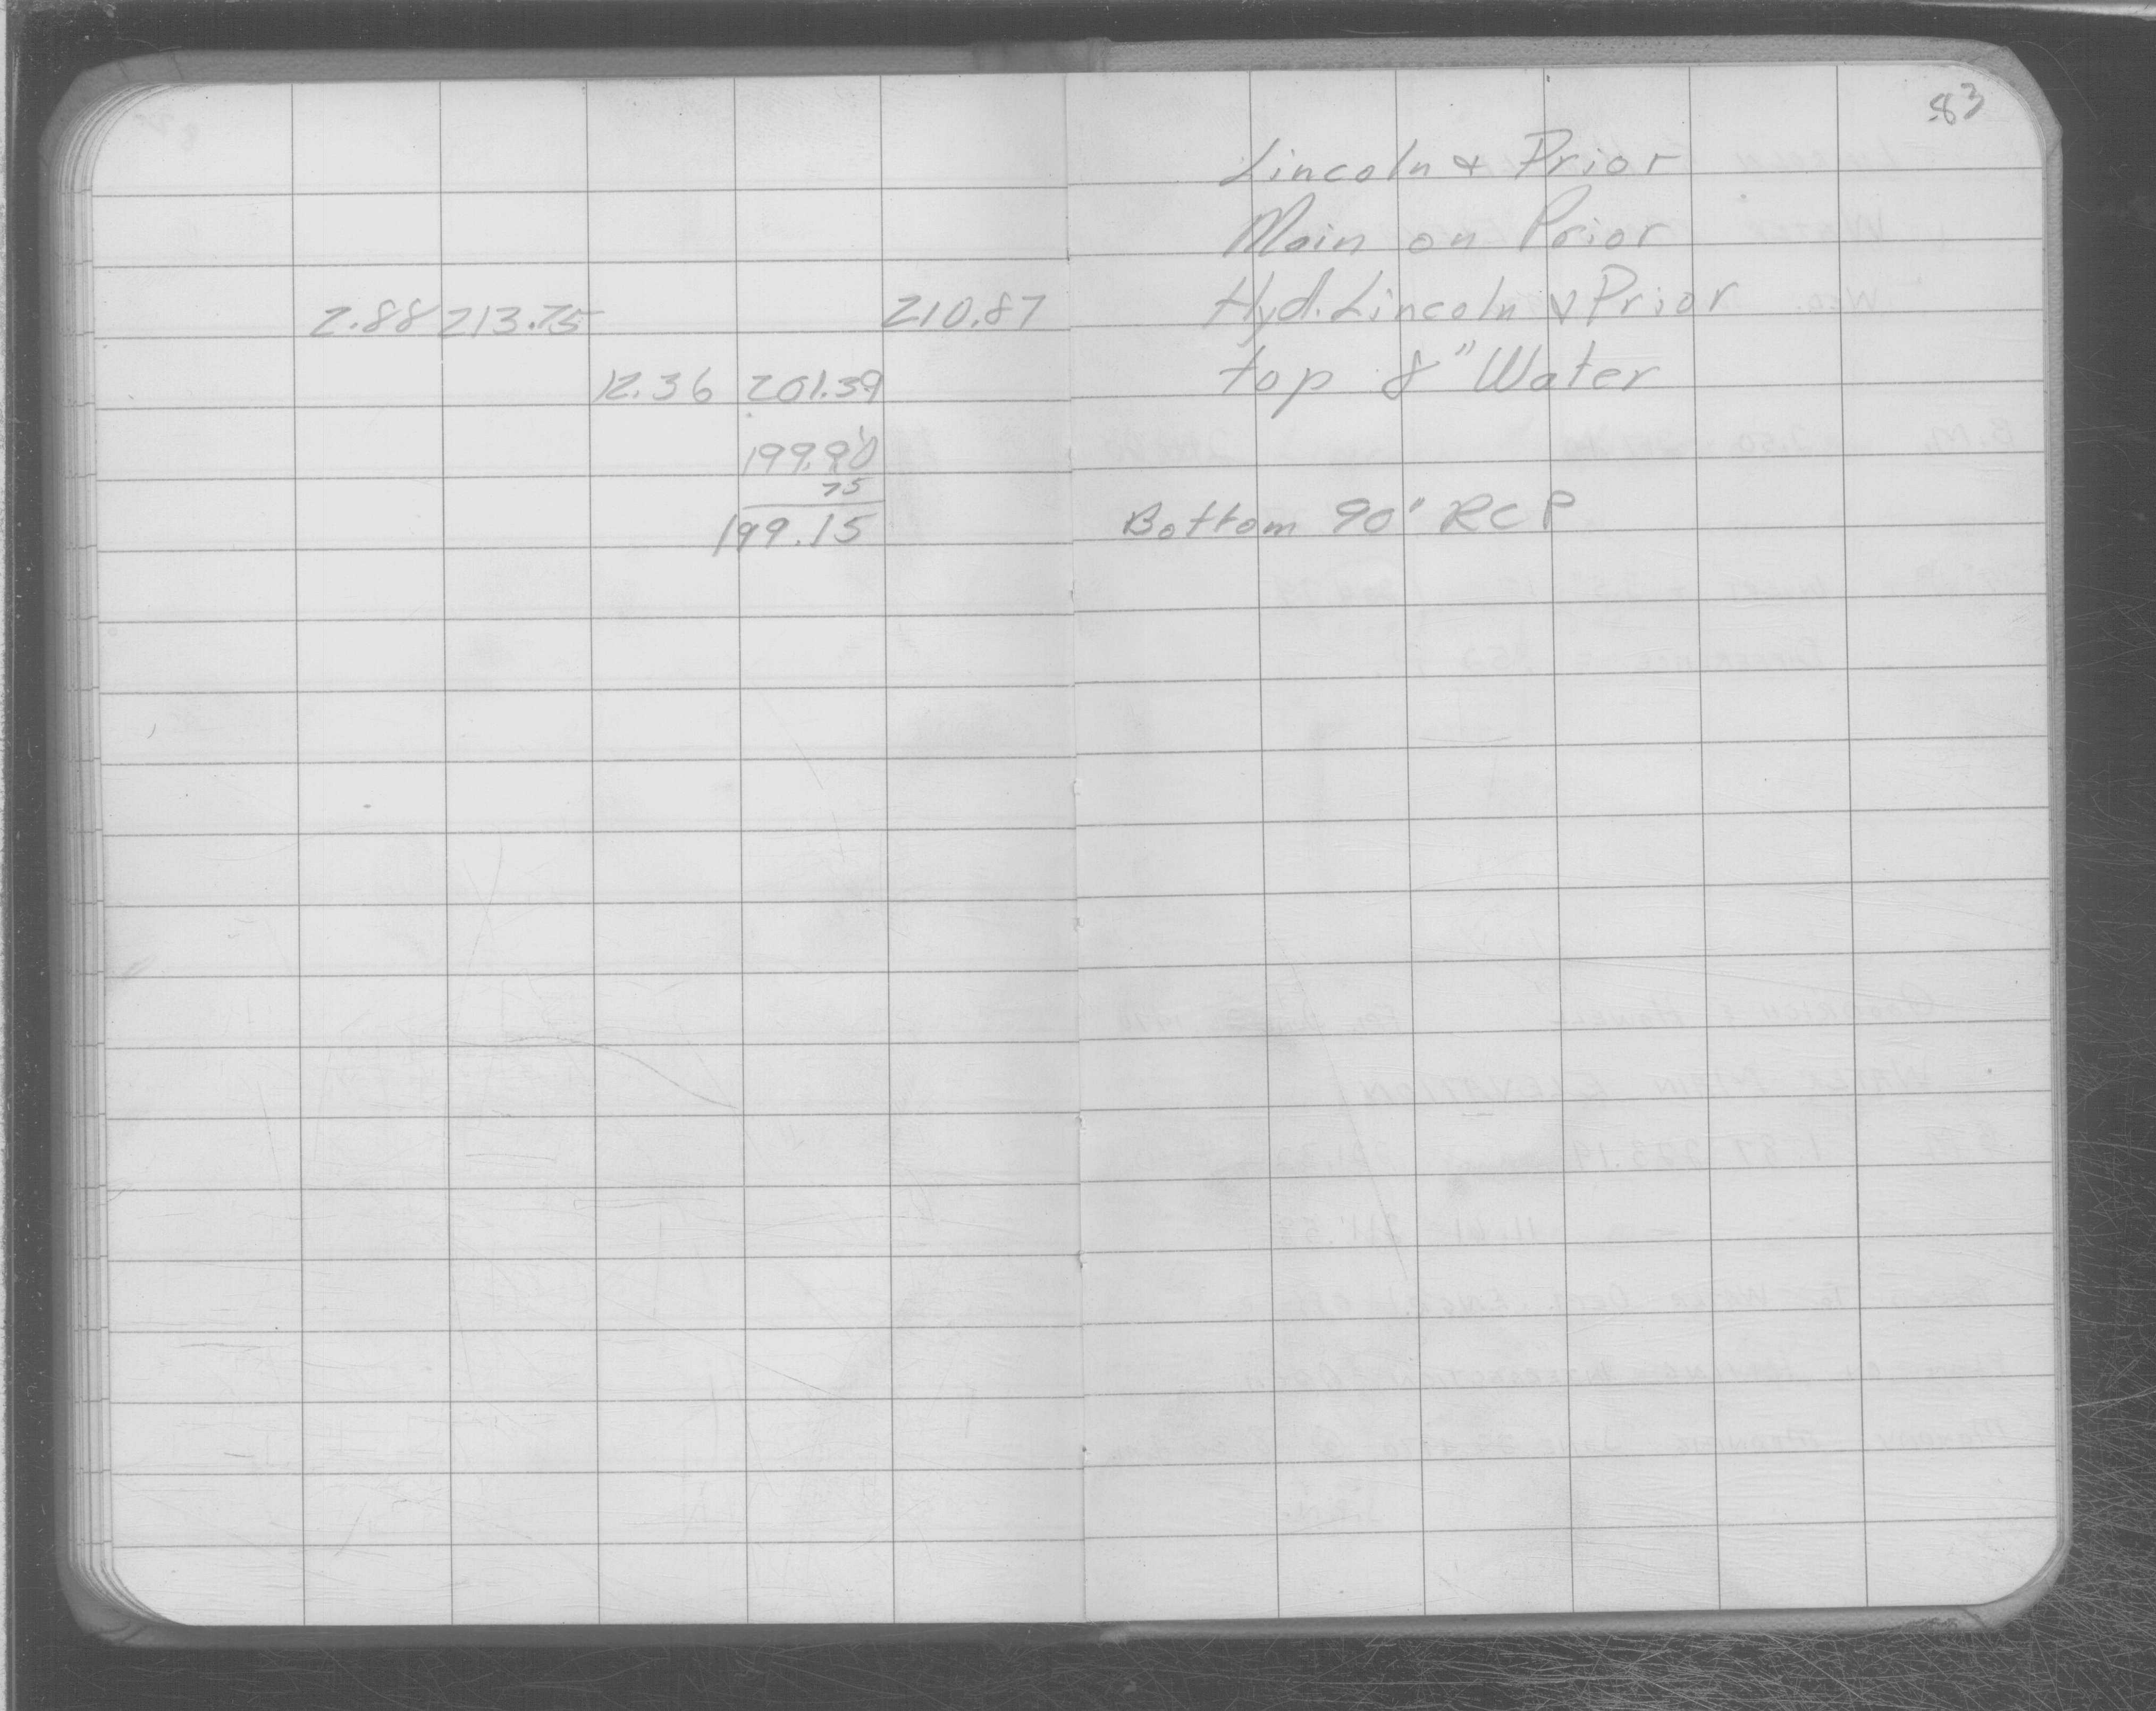 83
Lincoln & Prior
Main on Prior
2.88 213.75 210.87 Hyd. Lincoln & Prior
12.36 201.39 top 8" Water
199.90
75
199.15 Bottom 90" RCP